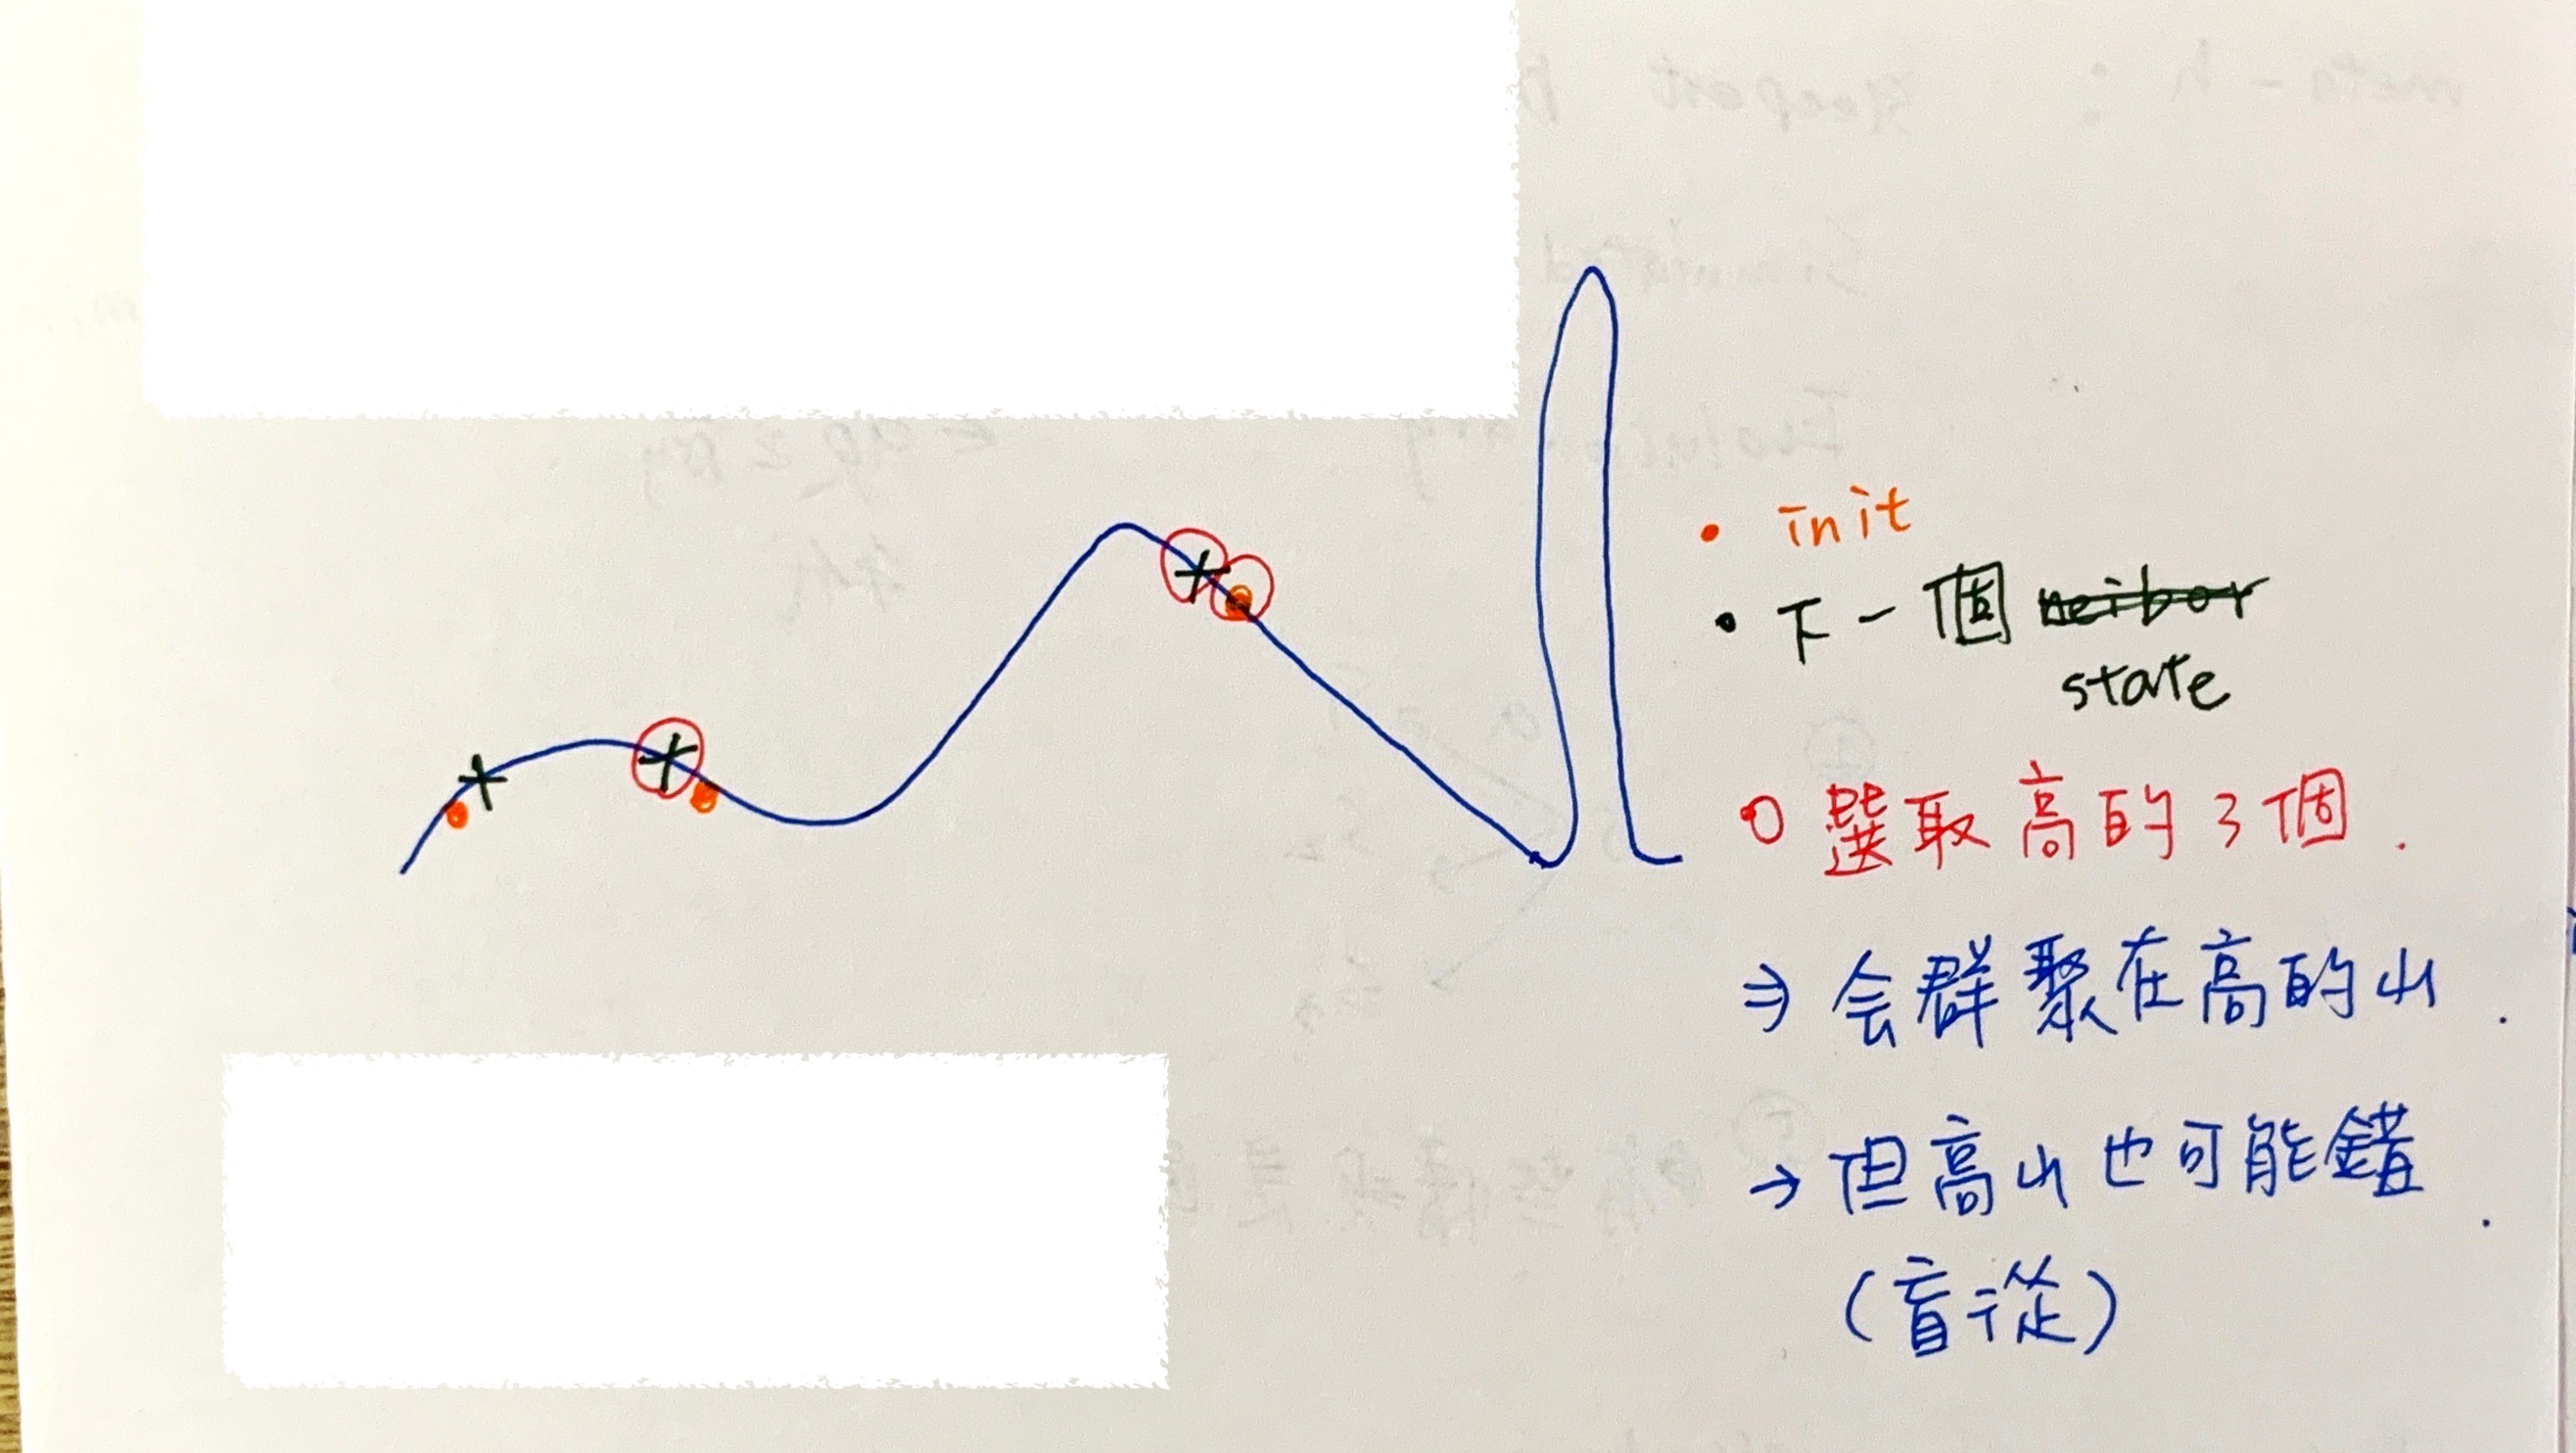 • init
• 下一個 neibor
state
○ 選取高的3個.
⇒ 会群聚在高的山.
→ 但高山也可能錯.
(盲從)